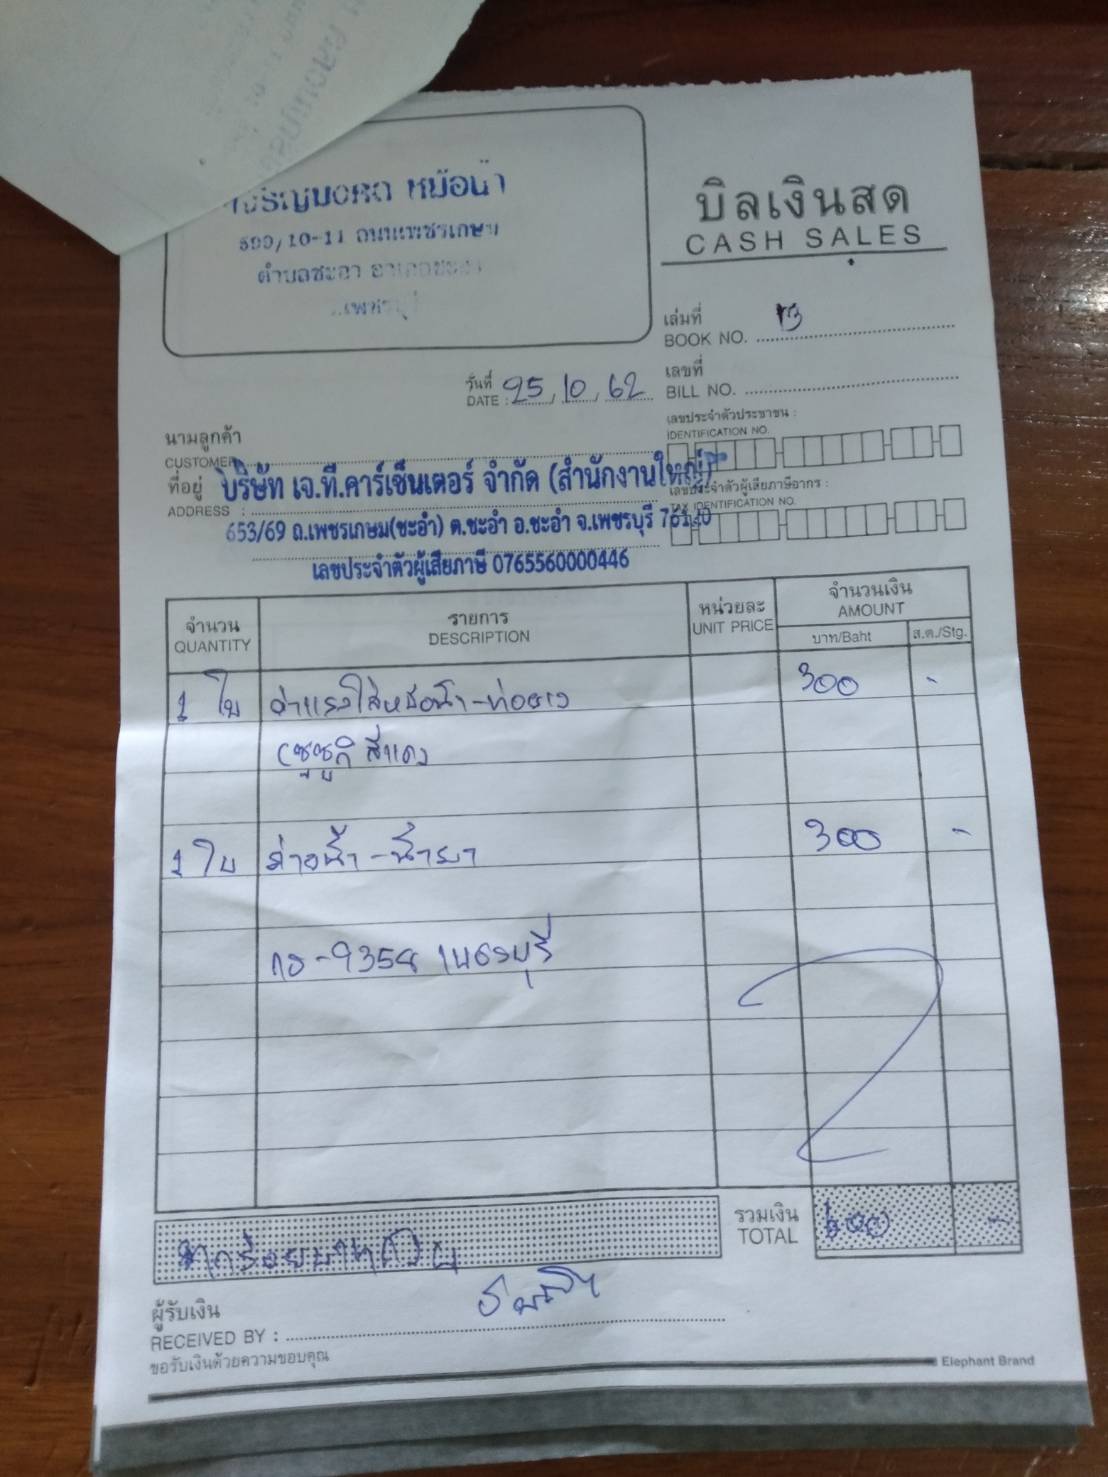 หม้อน้ำ
/10-11 ถนนเพชรเกษม
ตำบลชะอำ
บิลเงินสด
CASH SALES
เล่มที่
BOOK NO.
13
วันที่
DATE : 25, 10, 62
เลขที่
BILL NO.
เลขประจำตัวประชาชน :
IDENTIFICATION NO.
นามลูกค้า
CUSTOMER
ที่อยู่
ADDRESS :
บริษัท เจ.ที.คาร์เซ็นเตอร์ จำกัด (สำนักงานใหญ่)
เลขประจำตัวผู้เสียภาษีอากร :
TAX IDENTIFICATION NO.
653/69 ถ.เพชรเกษม(ชะอำ) ต.ชะอำ อ.ชะอำ จ.เพชรบุรี 76120
เลขประจำตัวผู้เสียภาษี 0765560000446
จำนวน
QUANTITY
รายการ
DESCRIPTION
หน่วยละ
UNIT PRICE
จำนวนเงิน
AMOUNT
บาท/Baht
ส.ต./Stg.
1 ใบ ค่าแรงใส่หม้อน้ำ-ท่อยาง 300 -
(ซูซูกิ สีแดง
1 ใบ น้ำ-น้ำยา 300 -
-9358 เพชรบุรี
รวมเงิน
TOTAL
600 -
หกร้อยบาทถ้วน
ผู้รับเงิน
RECEIVED BY :
ขอรับเงินด้วยความขอบคุณ
Elephant Brand